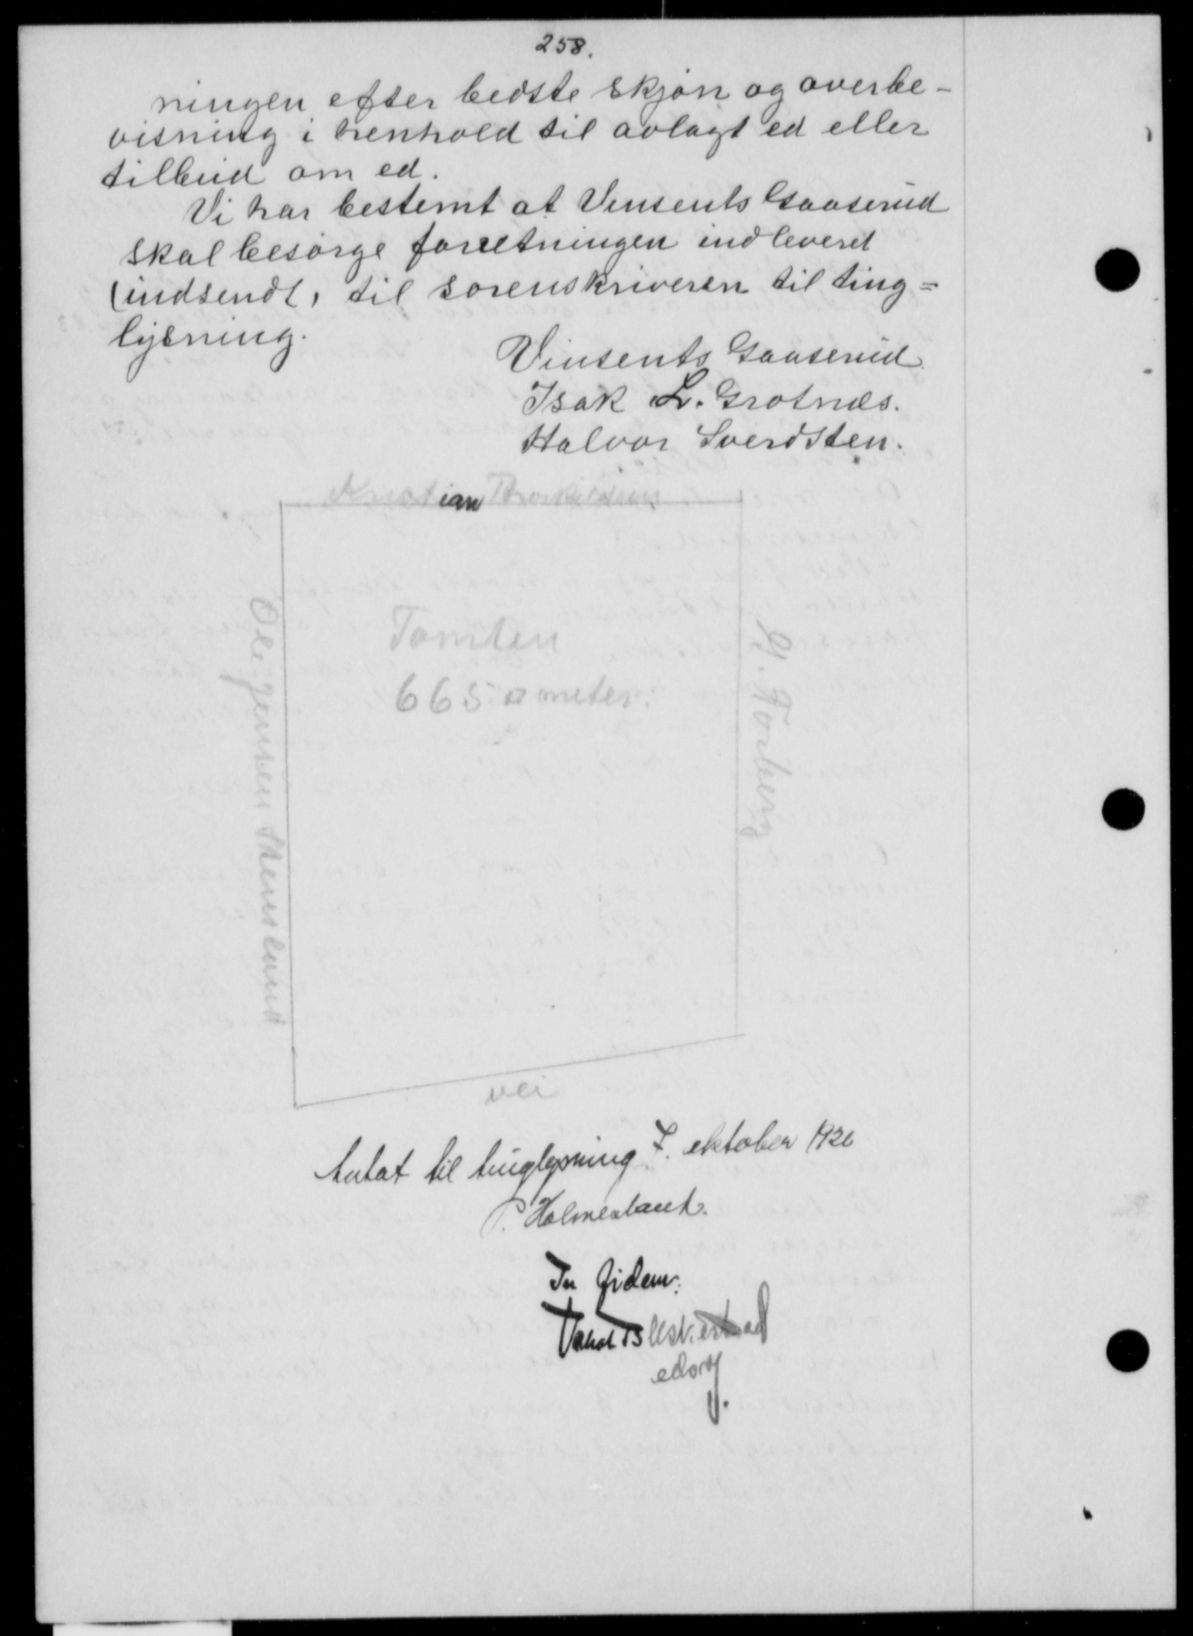 258.
ningen efter bedste skjøn og overbe-
visning i henhold til avlagt ed eller
tilbud om ed.
Vi har bestemt at Vinsents Gaaserud
skal besørge forretningen indleveret
(indsendt) til sorenskriveren til ting=
lysning.
Vinsents Gaaserud.
Isak L. Grotnæs.
Halvor Sverdsten.
Kristian Thorkildsens
Ole Jensen
Tomten
665 □ meter.
Torberg
vei
Antat til tinglysning 7. oktober 1926
P. Holmesland.
In fidem:
edsv.